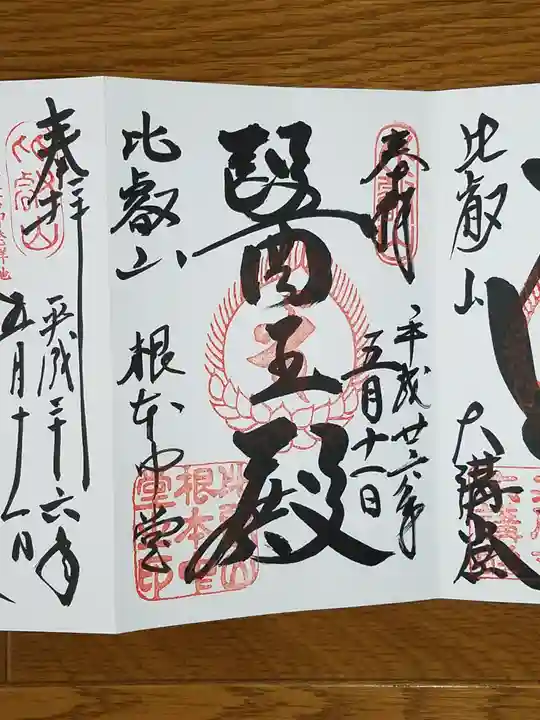 比叡山
大講堂
奉拝
平成廿六年
五月十一日
醫王殿
比叡山
根本中堂
比叡山
根本中
堂印
奉拝
平成二十六年
五月十一日